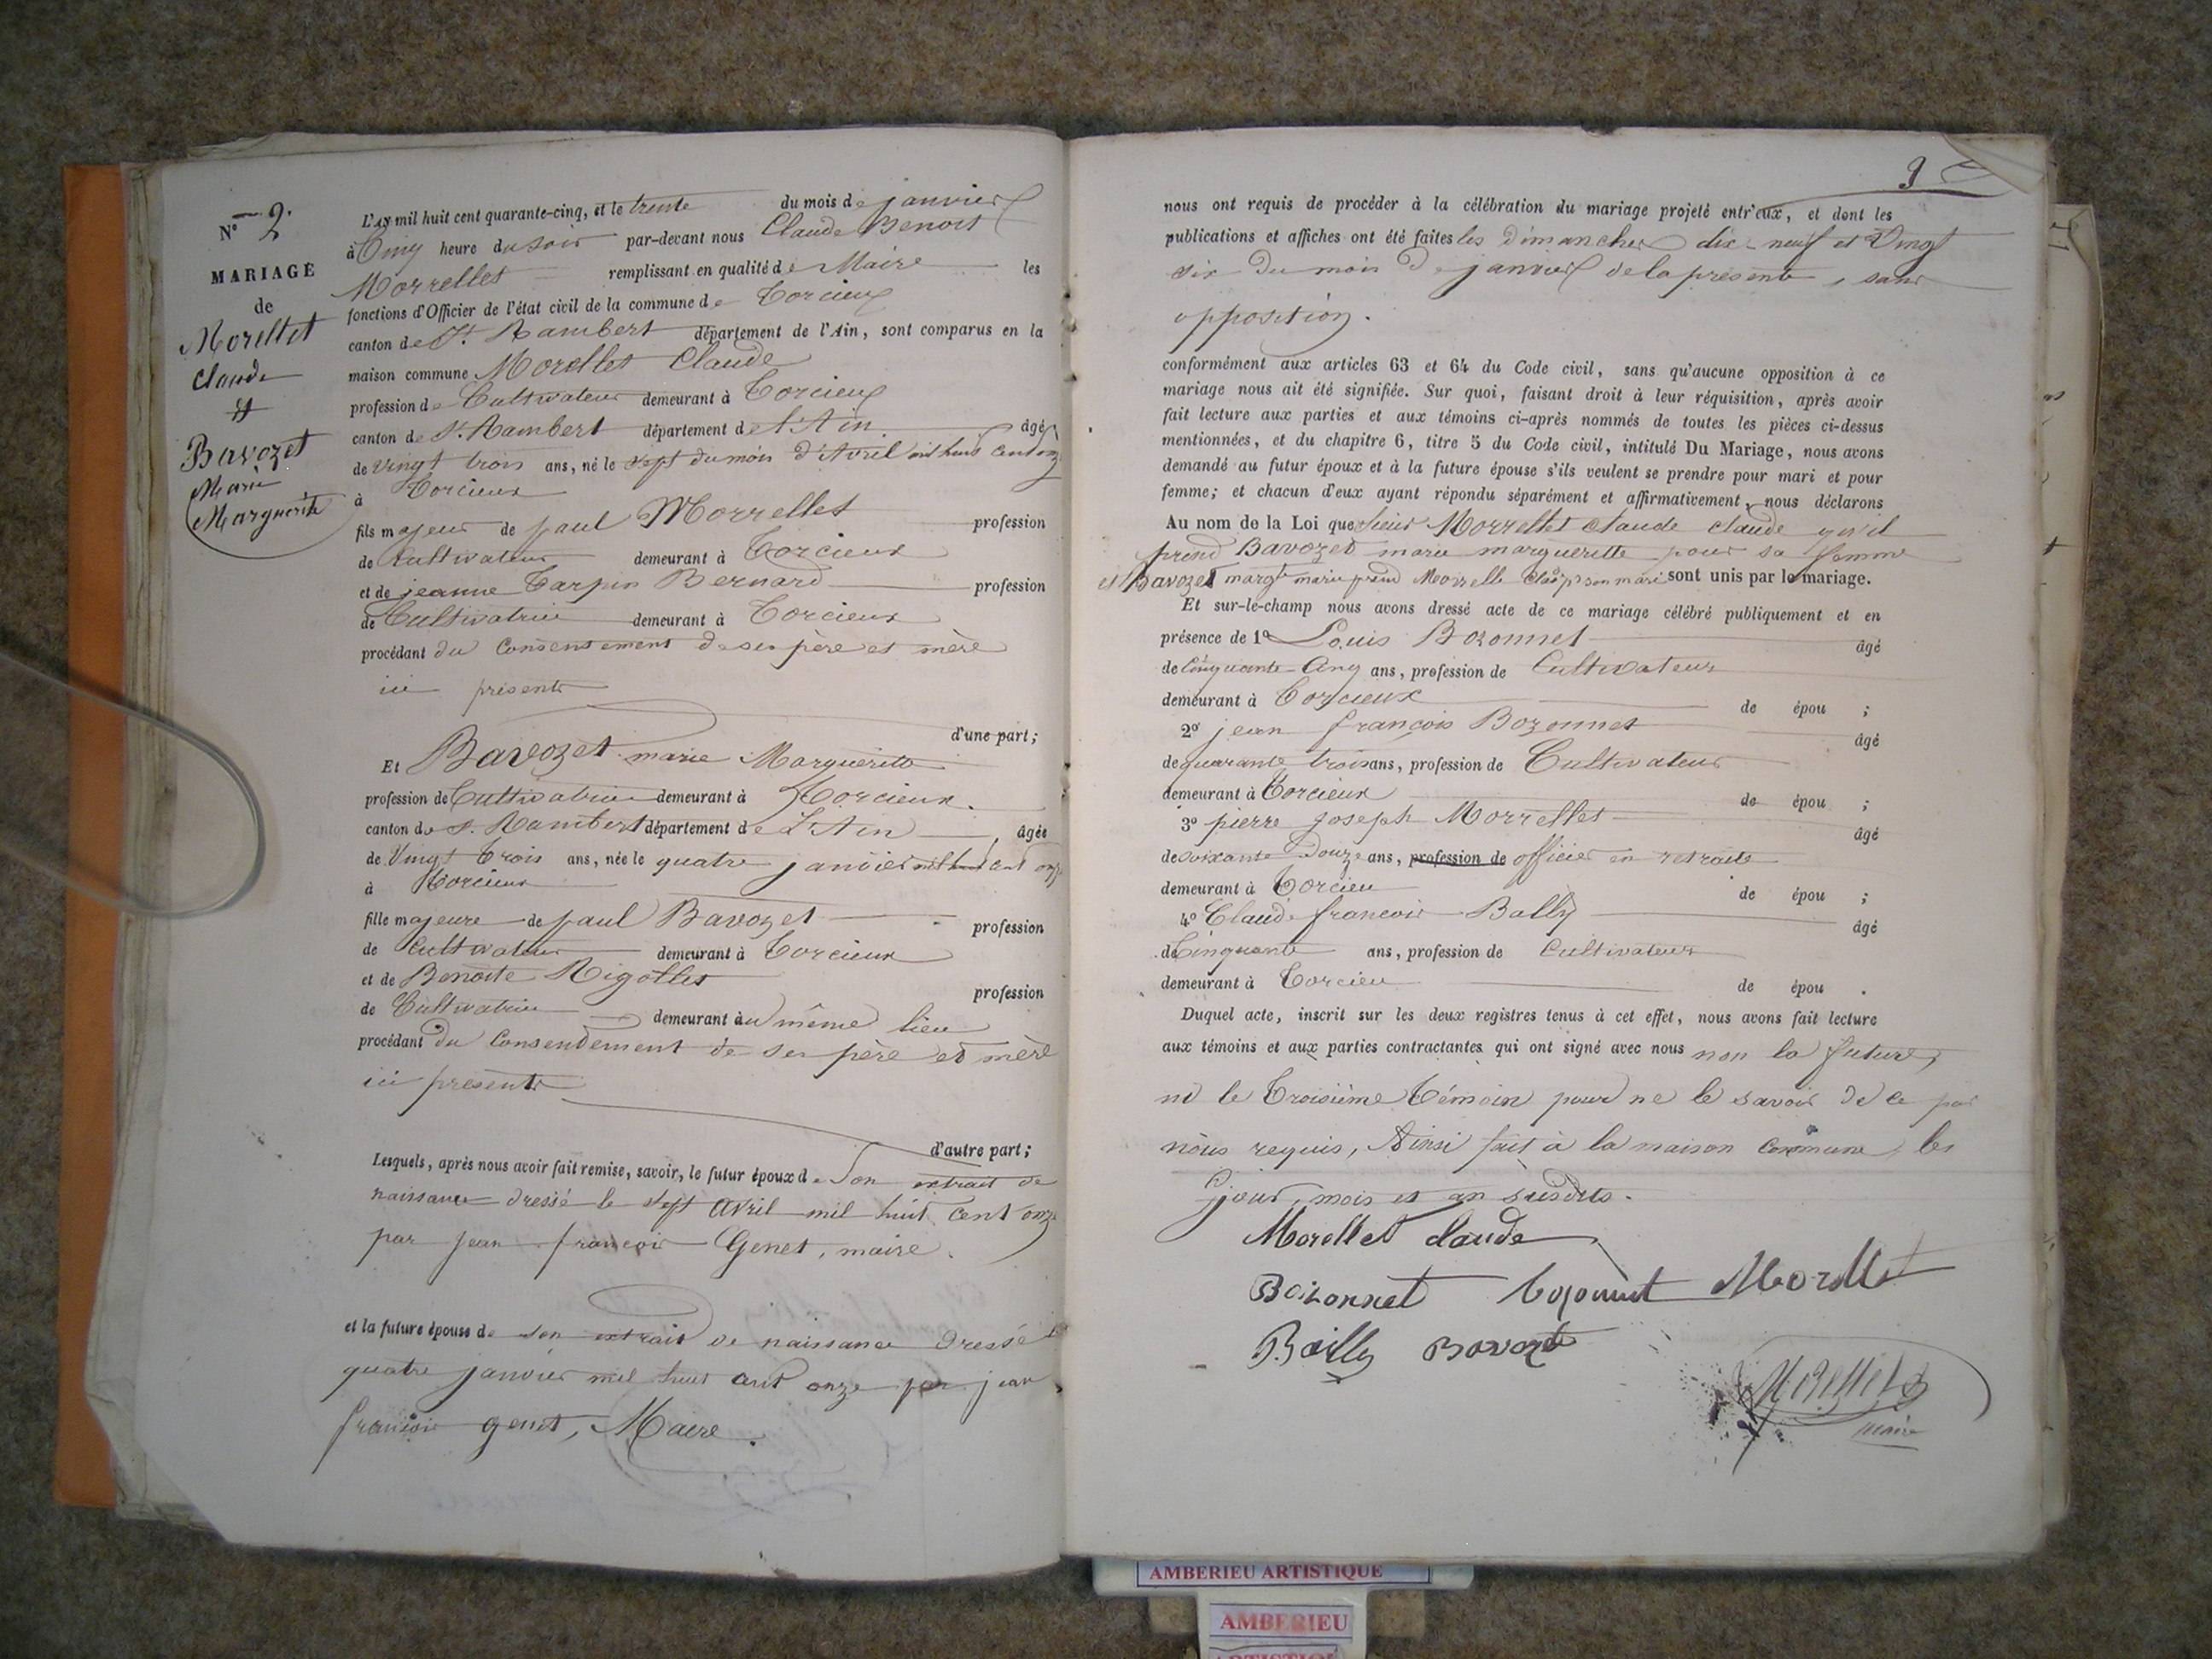 N° 2.
MARIAGE
de
Morellet
Claude
et
Bavozet
Marie
Marguerite
L'AN mil huit cent quarante-cinq, et le trente du mois de janvier
à Cinq heure du soir par-devant nous Claude Benoit
Morrellet remplissant en qualité de Maire les
fonctions d'Officier de l'état civil de la commune de Torcieux
canton de St. Rambert département de l'Ain, sont comparus en la
maison commune Morellet Claude
profession de Cultivateur demeurant à Torcieux
canton de St. Rambert département de l'Ain. âgé
de vingt trois ans, né le sept du mois d'Avril mil huit cent onze
à Torcieux
fils majeur de paul Morrellet profession
de Cultivateur demeurant à Torcieux
et de jeanne Tarpin Bernard profession
de Cultivatrice demeurant à Torcieux
procédant du Consentement de ses père et mère
ici présents
d'une part;
Et Bavozet marie Margueritte
profession de Cultivatrice demeurant à Torcieux.
canton de St. Rambert département de L'Ain, âgée
de Vingt Trois ans, née le quatre janvier mil huit cent onze
à Torcieux
fille majeure de paul Bavozet profession
de Cultivateur demeurant à Torcieux
et de Benoite Rigollet profession
de Cultivatrice demeurant au même lieu
procédant du Consendement de ses père et mère
ici présents
d'autre part;
Lesquels, après nous avoir fait remise, savoir, le futur époux de Son extrait de
naissance dressé le sept avril mil huit cent onze
par jean françois Genet, maire.
et la future épouse de son extrait de naissance dressé le
quatre janvier mil huit cent onze par jean
françois genet, Maire.
3
nous ont requis de procéder à la célébration du mariage projeté entr'eux, et dont les
publications et affiches ont été faites les dimanches dix-neuf et Vingt
six du mois de janvier de la présente, sans
opposition.
conformément aux articles 63 et 64 du Code civil, sans qu'aucune opposition à ce
mariage nous ait été signifiée. Sur quoi, faisant droit à leur réquisition, après avoir
fait lecture aux parties et aux témoins ci-après nommés de toutes les pièces ci-dessus
mentionnées, et du chapitre 6, titre 5 du Code civil, intitulé Du Mariage, nous avons
demandé au futur époux et à la future épouse s'ils veulent se prendre pour mari et pour
femme; et chacun d'eux ayant répondu séparément et affirmativement, nous déclarons
Au nom de la Loi que sieur Morrellet claude claude qu'il
prend Bavozet marie marguerette pour sa femme
et Bavozet margte marie prend Morrelle Clde pr son mari sont unis par le mariage.
Et sur-le-champ nous avons dressé acte de ce mariage célébré publiquement et en
présence de 1° Louis Bozonnet âgé
de Cinquante-Cinq ans, profession de Cultivateur
demeurant à Torcieux de épou ;
2° jean françois Bozonnet âgé
de quarante trois ans, profession de Cultivateur
demeurant à Torcieux de épou ;
3° pierre joseph Morrellet âgé
de soixante Douze ans, profession de officier en retraite
demeurant à Torcieu de épou ;
4° Claude francois Bailly âgé
de Cinquante ans, profession de Cultivateur
demeurant à Torcieu de épou .
Duquel acte, inscrit sur les deux registres tenus à cet effet, nous avons fait lecture
aux témoins et aux parties contractantes qui ont signé avec nous non la future,
ni le Troisième Témoin pour ne le savoir de ce par
nous requis, Ainsi fait à la maison Commune, les
jour, mois et an susdits.
Morellet claude
Boizonnet Bozonnet Morellet
Bailly Bavozet
Morellet
maire
AMBERIEU ARTISTIQUE
AMBERIEU
ARTISTIQUE